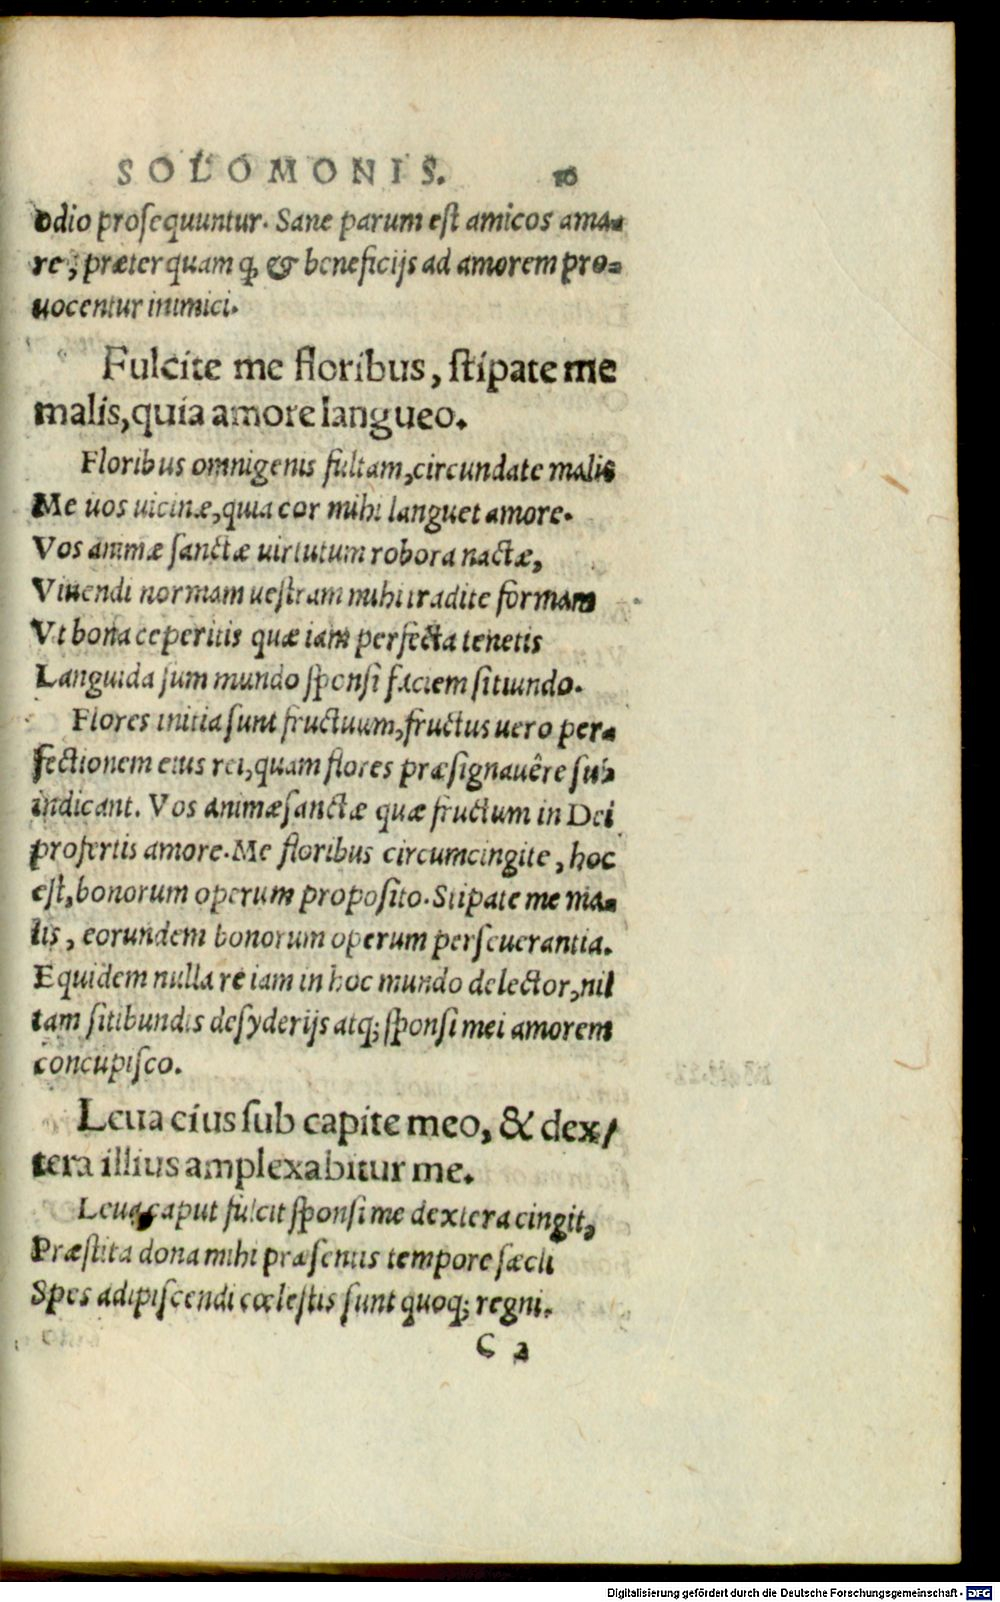 SOLOMONIS. 10
odio prosequuntur. Sane parum est amicos ama-
re, præterquam q; & beneficijs ad amorem pro-
uocentur inimici.
Fulcite me floribus, stipate me
malis, quia amore langueo.
Floribus omnigenis fultam, circundate malis
Me uos uicinæ, quia cor mihi languet amore.
Vos animæ sanctæ uirtutum robora nactæ,
Viuendi normam uestram mihi tradite formam
Vt bona ceperitis quæ iam perfecta tenetis
Languida sum mundo sponsi faciem sitiundo.
Flores initia sunt fructuum, fructus uero per-
fectionem eius rei, quam flores præsignauêre sub
indicant. Vos animæ sanctæ quæ fructum in Dei
profertis amore. Me floribus circumcingite, hoc
est, bonorum operum proposito. Stipate me ma-
lis, eorundem bonorum operum perseuerantia.
Equidem nulla re iam in hoc mundo delector, nil
tam sitibundis desyderijs atq; sponsi mei amorem
concupisco.
Leua eius sub capite meo, & dex/
tera illius amplexabitur me.
Leua caput fulcit sponsi me dextera cingit,
Præstita dona mihi præsentis tempore sæcli
Spes adipiscendi cœlestis sunt quoq; regni.
C 2
Digitalisierung gefördert durch die Deutsche Forschungsgemeinschaft - DFG